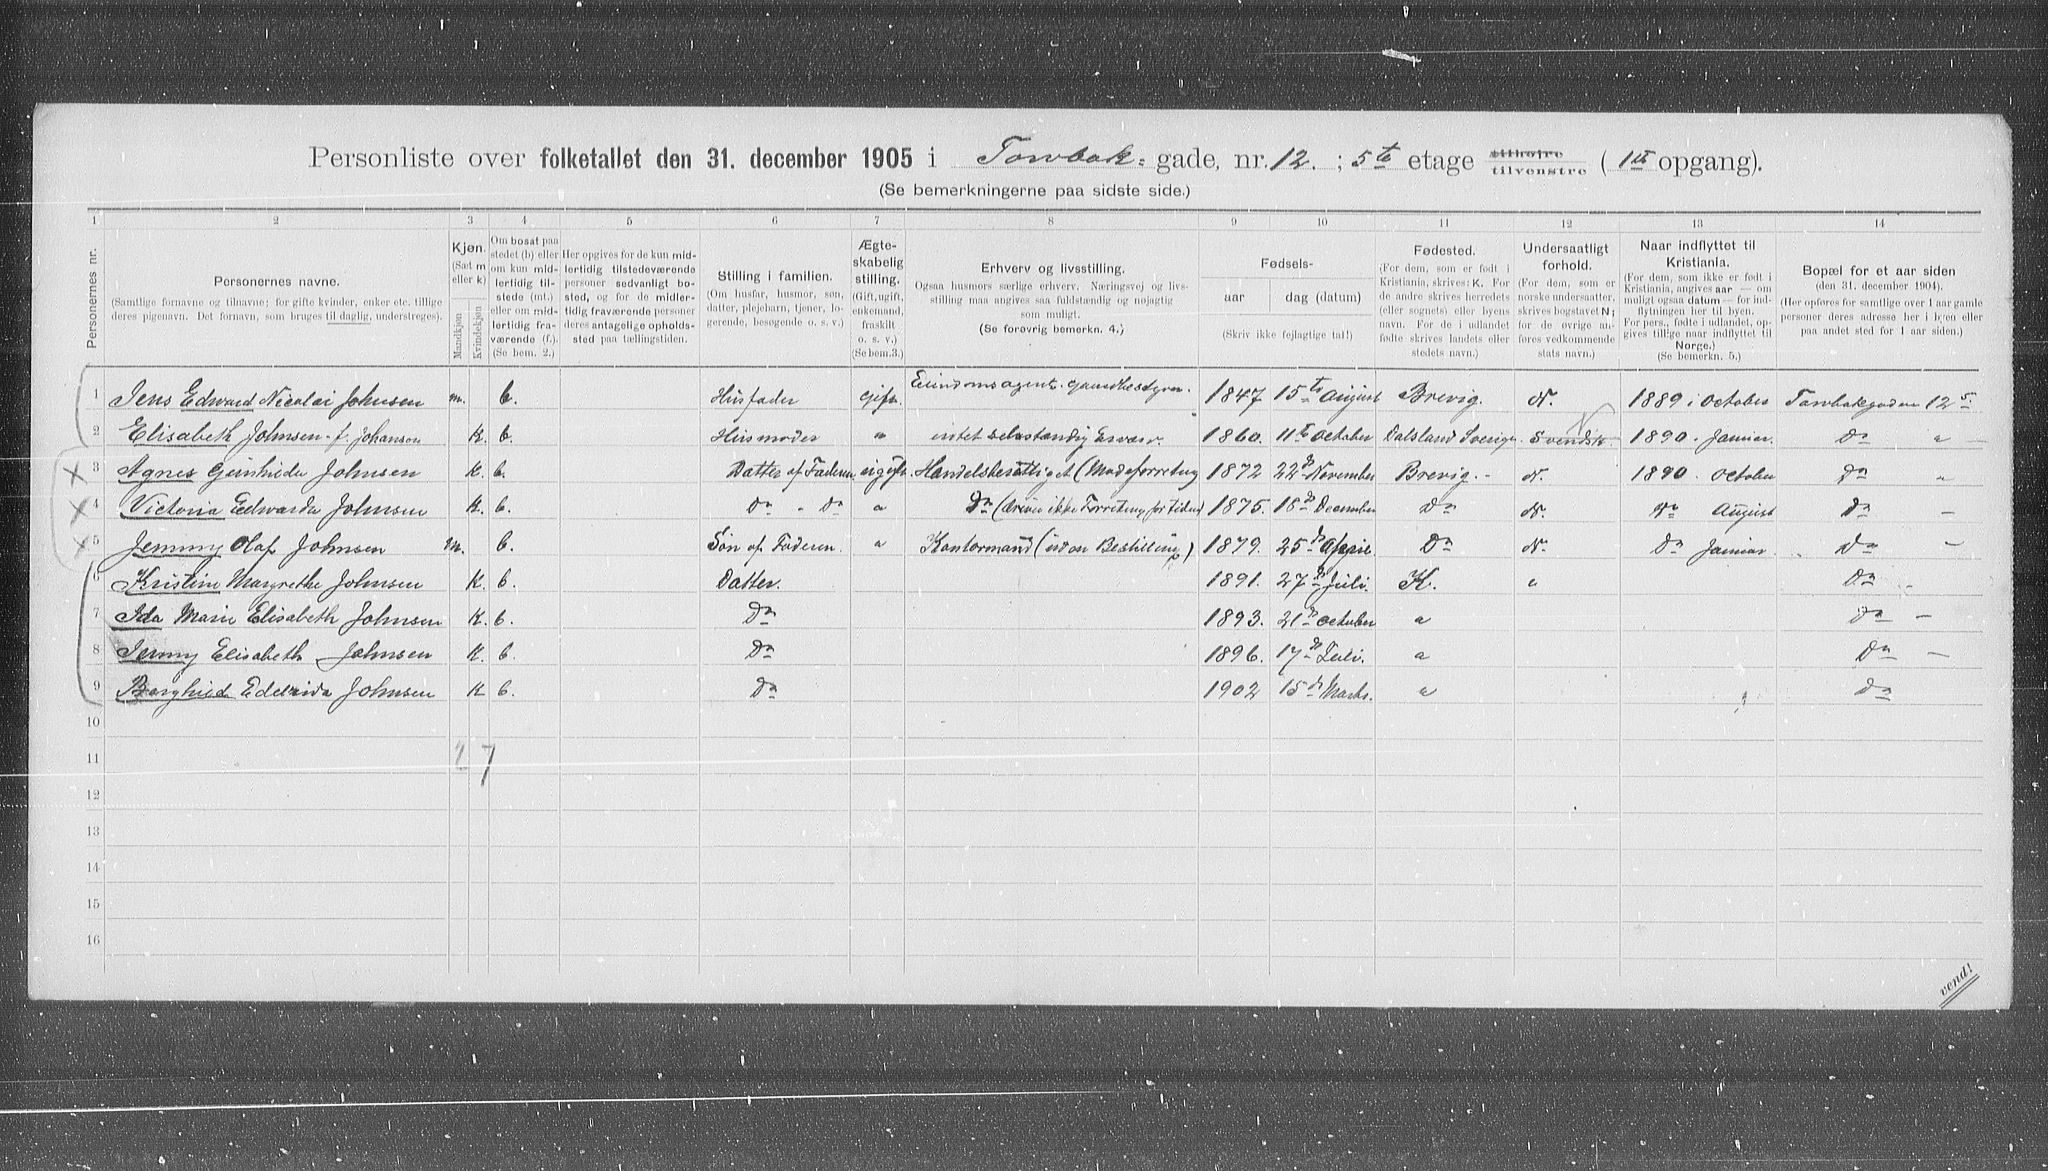 Personliste over folketallet den 31. december 1905 i Towbak= gade, nr. 12. ; 5te etage tilhøire tilvenstre ( 1ste opgang).
(Se bemerkningerne paa sidste side.)
1 2 3 4 5 6 7 8 9 10 11 12 13 14
Personernes nr.
Personernes navne.
(Samtlige fornavne og tilnavne; for gifte kvinder, enker etc. tillige deres pigenavn. Det fornavn, som bruges til daglig, understreges).
Kjøn.
(Sæt m eller k)
Mandkjøn
Kvindekjøn
Om bosat paa stedet (b) eller om kun midlertidig tilstede (mt.) eller om midlertidig fraværende (f.). (Se bem. 2.)
Her opgives for de kun midlertidig tilstedeværende personer sedvanligt bosted, og for de midlertidig fraværende personer deres antagelige opholdssted paa tællingstiden.
Stilling i familien.
(Om husfar, husmor, søn, datter, plejebarn, tjener, logerende, besøgende o. s. v.)
Ægteskabelig stilling.
(Gift, ugift, enkemand, fraskilt o. s. v.)
(Se bem.3.)
Erhverv og livsstilling.
Ogsaa husmors særlige erhverv. Næringsvej og livsstilling maa angives saa fuldstændig og nøjagtig som muligt.
(Se forøvrig bemerkn. 4.)
Fødsels-
aar dag (datum)
(Skriv ikke fejlagtige tal!)
Fødested.
(For dem, som er født i Kristiania, skrives: K. For de andre skrives herredets (eller sognets) eller byens navn. For de i udlandet fødte skrives landets eller stedets navn.)
Undersaatligt forhold.
(For dem, som er norske undersaatter, skrives bogstavet N; for de øvrige anføres vedkommende stats navn.)
Naar indflyttet til Kristiania.
(For dem, som ikke er født i Kristiania, angives aar — om muligt ogsaa datum — for indflytningen her til byen. For pers., fødte i udlandet, opgives tillige naar indflyttet til Norge.)
(Se bemerkn. 5.)
Bopæl for et aar siden
(den 31. december 1904).
(Her opføres for samtlige over 1 aar gamle personer deres adresse her i byen eller paa andet sted for 1 aar siden.)
1 Jens Edward Nicolai Johnsen m. b. Husfader gift. Eiendomsagent. Gaardbestyrer. 1847 15te August Brevig. N. 1889 i October Towbakgaden 12 5.
2 Elisabeth Johnsen f. Johansen K. b. Husmoder " intet selvstændig Erværv. 1860. 11te October Dalsland Sverige Svendsk. 1890. Januar. Do " —
3 Agnes Gunhilda Johnsen K. b. Datter af Faderen ugift. Handelsberettiget (Modeforretning 1872 22d November Brevig. - N. 1890. October Do "
4 Victoria Edwarda Johnsen K. b. Do " Do " Do (driver ikke Forretning for tiden) 1875. 18de December Do N. Do August Do —
5 Jemmy Olaf Johnsen m. b. Søn af Faderen. " Kontormand (uden Bestilling) 1879. 25de April Do N. Do Januar. Do —
6 Kristine Margrethe Johnsen K. b. Datter. 1891. 27de Juli. K. " Do -
7 Ida Marie Elisabeth Johnsen K. b. Do 1893. 21de October " Do —
8 Jenny Elisabeth Johnsen K. b. Do 1896. 17de Juli. " Do —
9 Borghild Johnsen K b. Do 1902 15de Marts. " Do
10
11
2 7
12
13
14
15
16
vend!